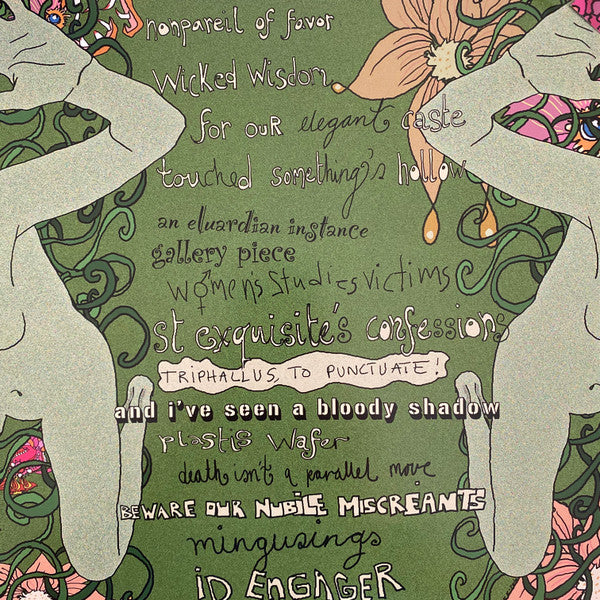 nonpareil of favor
Wicked Wisdom
for our elegant caste
touched something's hollow
an eluardian instance
gallery piece
women's studies victims
st exquisite's confessions
TRIPHALLUS, TO PUNCTUATE!
and i've seen a bloody shadow
plastis wafer
death isn't a parallel move
BEWARE OUR NUBILE MISCREANTS
mingusings
iD ENGAGER